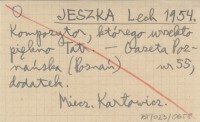 O JESZKA Lech 1954.
Kompozytor, którego urzekło
piękno Tatr. – Gazeta Poz-
nańska (Poznań) nr 55,
dodatek.
Miecz. Karłowicz.